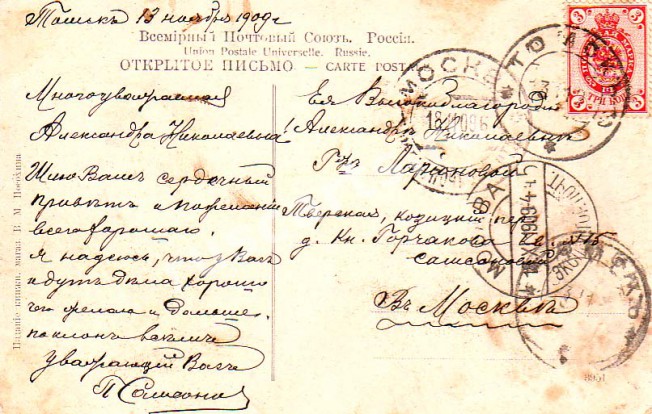 Томскъ 13 ноября 1909 г
Всемірный Почтовый Союзъ. Россія.
Union Postale Universelle. Russie.
ОТКРЫТОЕ ПИСЬМО — CARTE POSTALE
Многоуважаемая
Александра Николаевна!
Шлю Вамъ сердечный
привѣтъ и пожеланія
всего хорошаго.
Я надеюсь, что у Васъ
идутъ дѣла хорошо
чего желаю и дальше.
поклонъ
уважающій Васъ
П
Ея Высокоблагородію
Александрѣ Николаевнѣ
Г-жѣ Ларіоновой
Тверская, Козицкій пер
д. Кн. Горчакова кв. №
Въ Москвѣ
Изданіе книжн. магаз. В. М. Посохина
МОСКВА
ТОМСКЪ
3 3
3 ТРИ КОП. 3